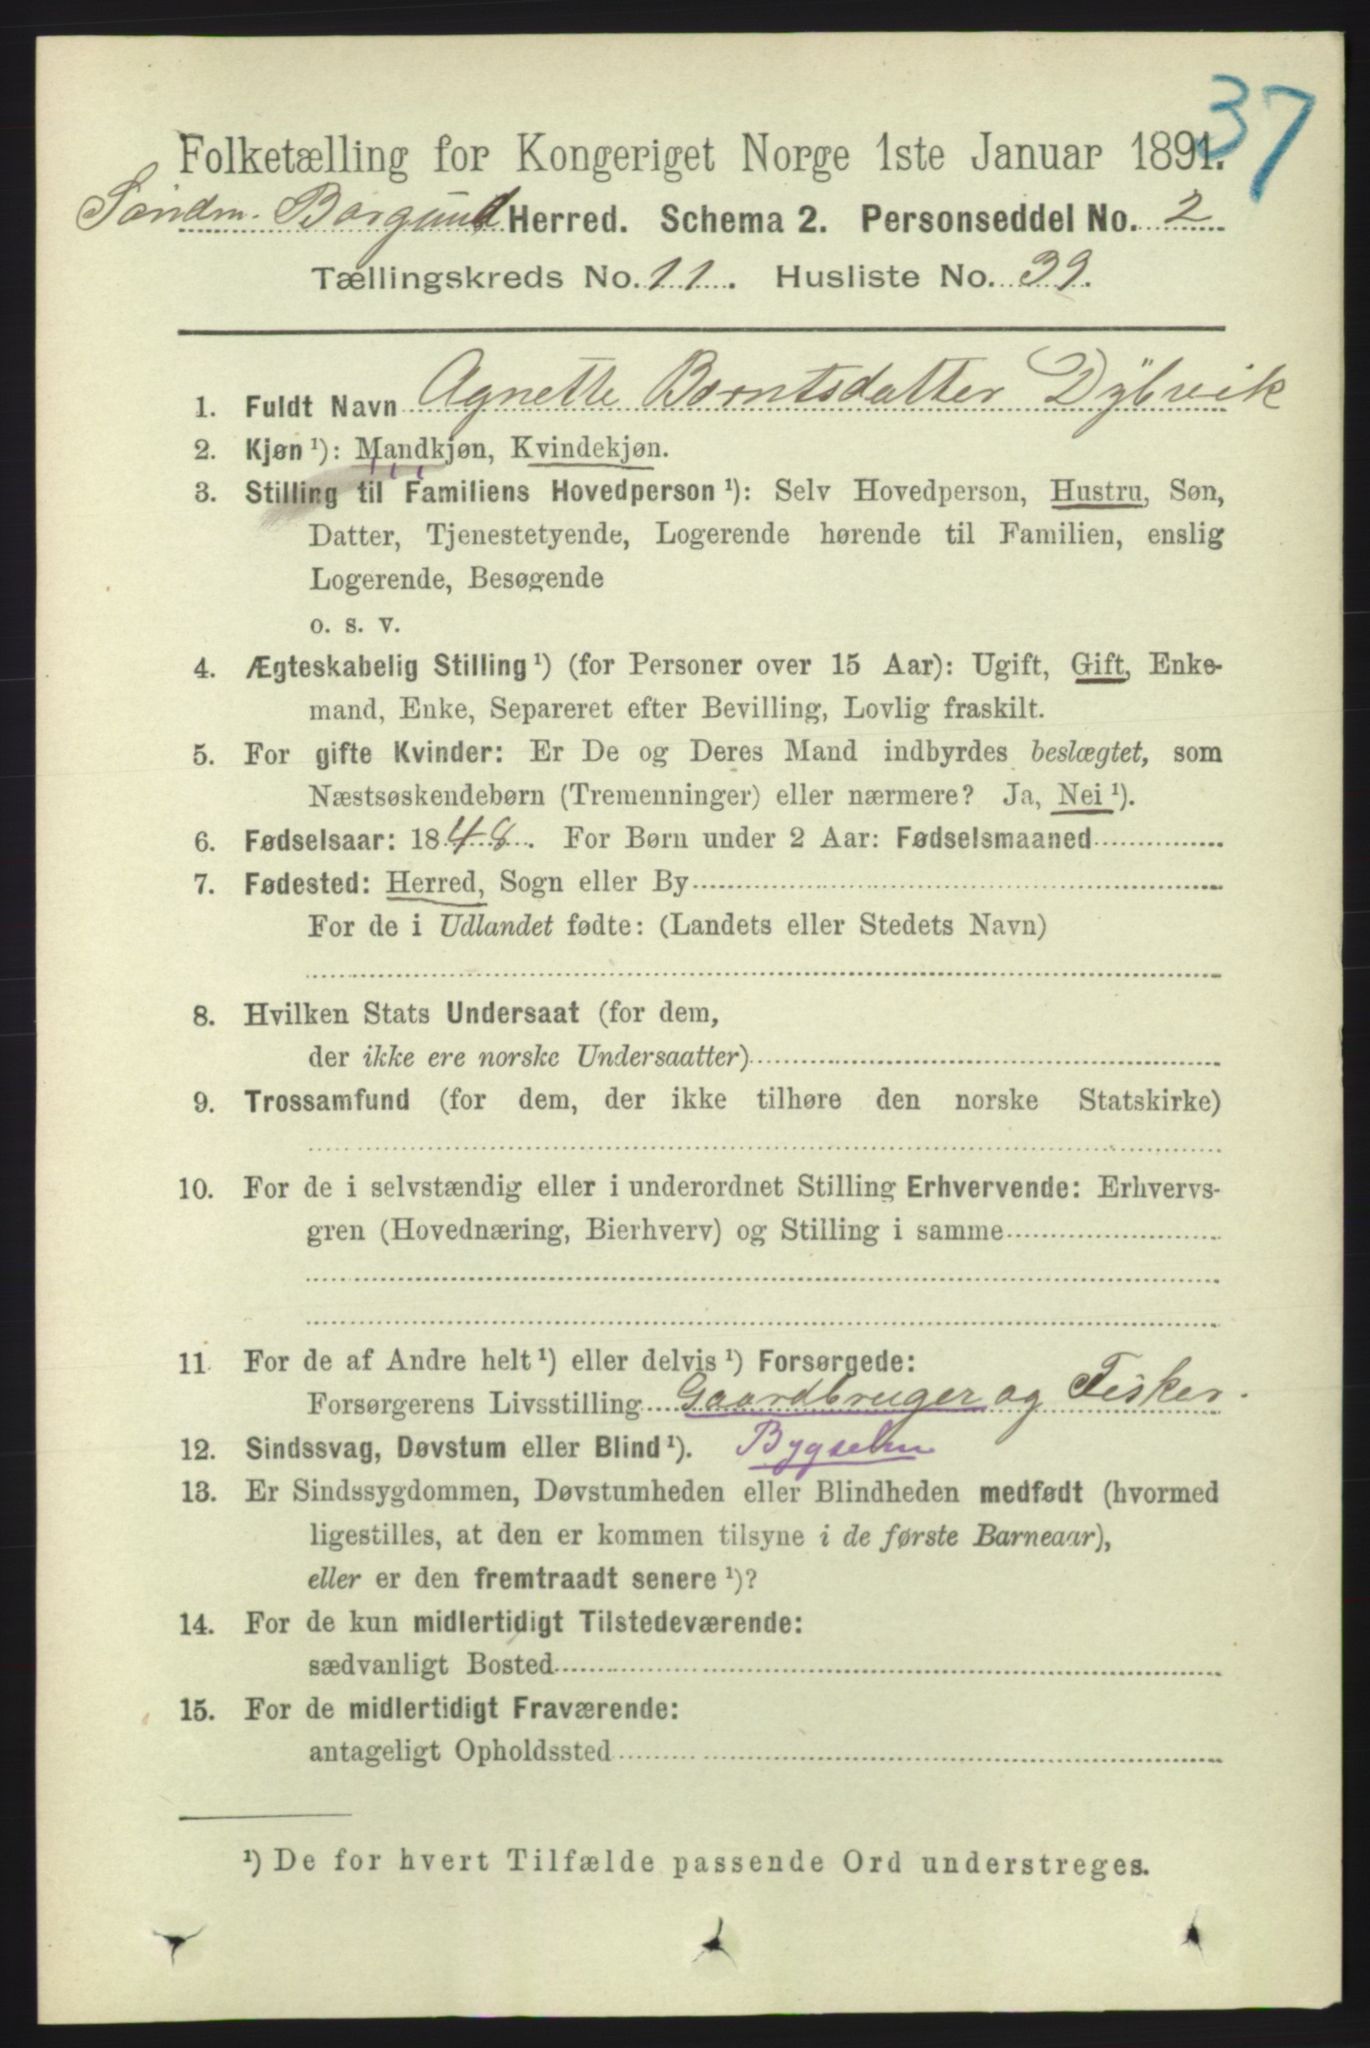 37
Folketælling for Kongeriget Norge 1ste Januar 1891.
Søndm. Borgund Herred. Schema 2. Personseddel No. 2
Tællingskreds No. 11. Husliste No. 39.
1. Fuldt Navn Agnette Berntsdatter Dÿbvik
2. Kjøn ¹): Mandkjøn, Kvindekjøn.
3. Stilling til Familiens Hovedperson ¹): Selv Hovedperson, Hustru, Søn,
Datter, Tjenestetyende, Logerende hørende til Familien, enslig
Logerende, Besøgende
o. s. v.
4. Ægteskabelig Stilling ¹) (for Personer over 15 Aar): Ugift, Gift, Enke-
mand, Enke, Separeret efter Bevilling, Lovlig fraskilt.
5. For gifte Kvinder: Er De og Deres Mand indbyrdes beslægtet, som
Næstsøskendebørn (Tremenninger) eller nærmere? Ja, Nei ¹).
6. Fødselsaar: 1848. For Børn under 2 Aar: Fødselsmaaned
7. Fødested: Herred, Sogn eller By
For de i Udlandet fødte: (Landets eller Stedets Navn)
8. Hvilken Stats Undersaat (for dem,
der ikke ere norske Undersaatter)
9. Trossamfund (for dem, der ikke tilhøre den norske Statskirke)
10. For de i selvstændig eller i underordnet Stilling Erhvervende: Erhvervs-
gren (Hovednæring, Bierhverv) og Stilling i samme
11 For de af Andre helt ¹) eller delvis ¹) Forsørgede:
Forsørgerens Livsstilling Gaardbruger og Fisker.
12. Sindssvag, Døvstum eller Blind ¹). Bygselm
13. Er Sindssygdommen, Døvstumheden eller Blindheden medfødt (hvormed
ligestilles, at den er kommen tilsyne i de første Barneaar),
eller er den fremtraadt senere ¹)?
14. For de kun midlertidigt Tilstedeværende:
sædvanligt Bosted
15. For de midlertidigt Fraværende:
antageligt Opholdssted
¹) De for hvert Tilfælde passende Ord understreges.